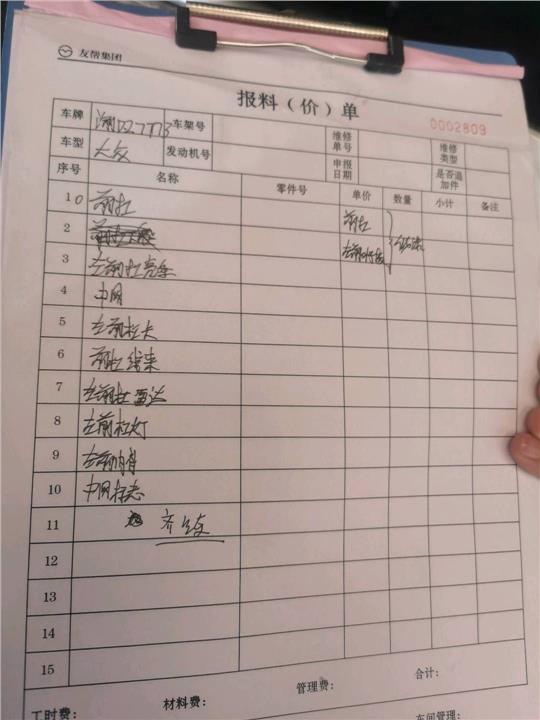 友帮集团
报料（价）单
0002809
车牌 车架号 维修单号 维修类型
车型 大众 发动机号 申报日期 是否追加件
序号 名称 零件号 单价 数量 小计 备注
1 前杠 前杠
2
3 左前杠亮条
4 中网
5 左前杠
6 前杠线束
7 左前杠雷达
8 左前杠灯
9 左前内骨
10 中网标志
11
12
13
14
15
工时费： 材料费： 管理费： 合计：
车间管理：